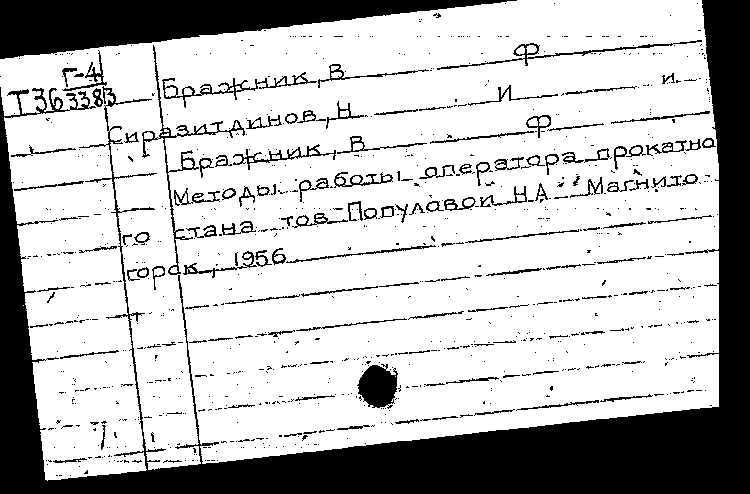 Г-4
Т36 3383
Бражник, В Ф
Сиразитдинов, Н И и
Бражник, В Ф
Методы работы оператора прокатно
го стана тов Популовой НА Магнито-
горск, 1956